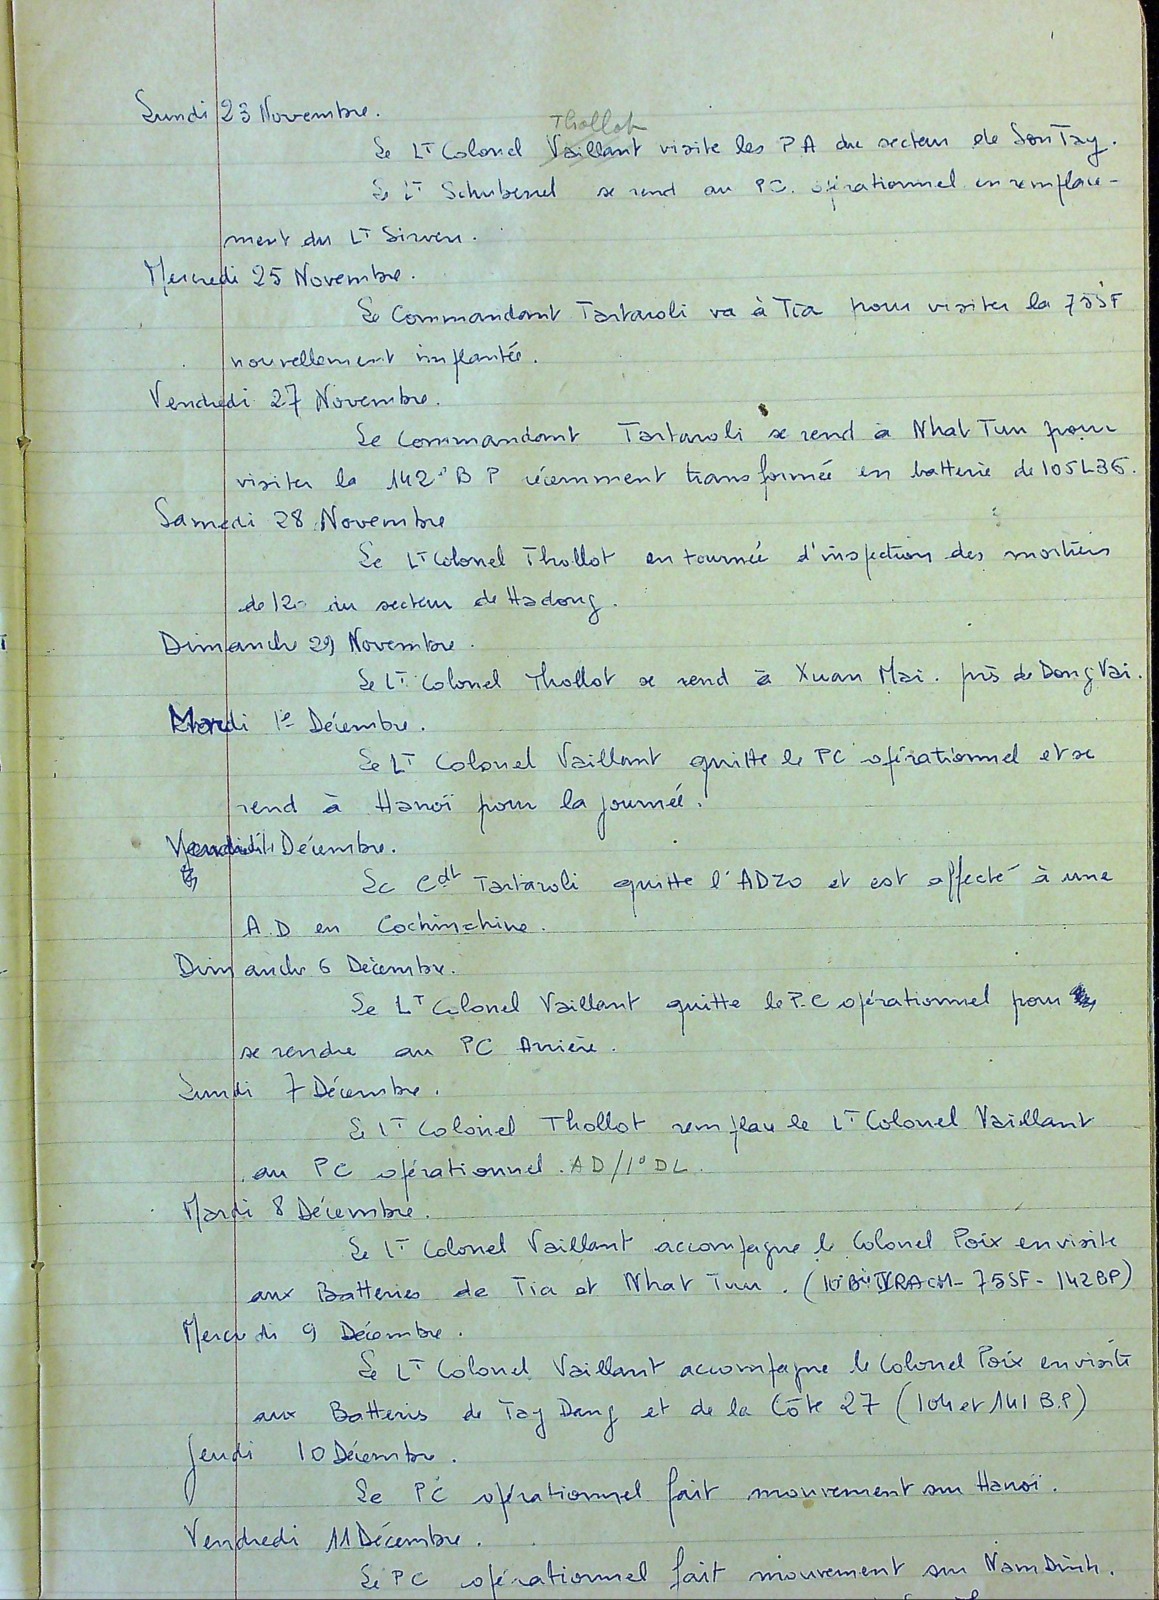 Lundi 23 Novembre.
Thollot
Le Lt Colonel Vaillant visite les PA du secteur de SonTay.
Le Lt Schubenel se rend au PC. opérationnel en remplace-
ment du Lt Sirven.
Mercredi 25 Novembre.
Le Commandant Tartaroli va à Tia pour visiter la 75SF
nouvellement implantée.
Vendredi 27 Novembre.
Le Commandant Tartaroli se rend à Nhat Tuu pour
visiter la 142° B P récemment transformée en batterie de 105L36.
Samedi 28 Novembre
Le Lt Colonel Thollot en tournée d'inspection des mortiers
de 120 du secteur de Hadong.
Dimanche 29 Novembre.
Le Lt Colonel Thollot se rend à Xuan Mai. près de Dong Vai.
Mardi 1e Décembre.
Le Lt Colonel Vaillant quitte le PC opérationnel et se
rend à Hanoï pour la journée.
Vendredi 4 Décembre.
Le Cdt Tartaroli quitte l'ADZO et est affecté à une
A.D en Cochinchine.
Dimanche 6 Décembre.
Le Lt Colonel Vaillant quitte le P.C opérationnel pour
se rendre au PC Arrière.
Lundi 7 Décembre.
Le Lt Colonel Thollot remplace le Lt Colonel Vaillant
au PC opérationnel. AD/1° DL.
Mardi 8 Décembre.
Le Lt Colonel Vaillant accompagne le Colonel Poix en visite
aux Batteries de Tia et Nhat Tuu. (10 Bie RACM - 75SF - 142BP)
Mercredi 9 Décembre.
Le Lt Colonel Vaillant accompagne le Colonel Poix en visite
aux Batteries de Tay Dang et de la Côte 27 (104 et 141 B.P)
Jeudi 10 Décembre.
Le PC opérationnel fait mouvement sur Hanoï.
Vendredi 11 Décembre.
Le PC opérationnel fait mouvement sur NamDinh.